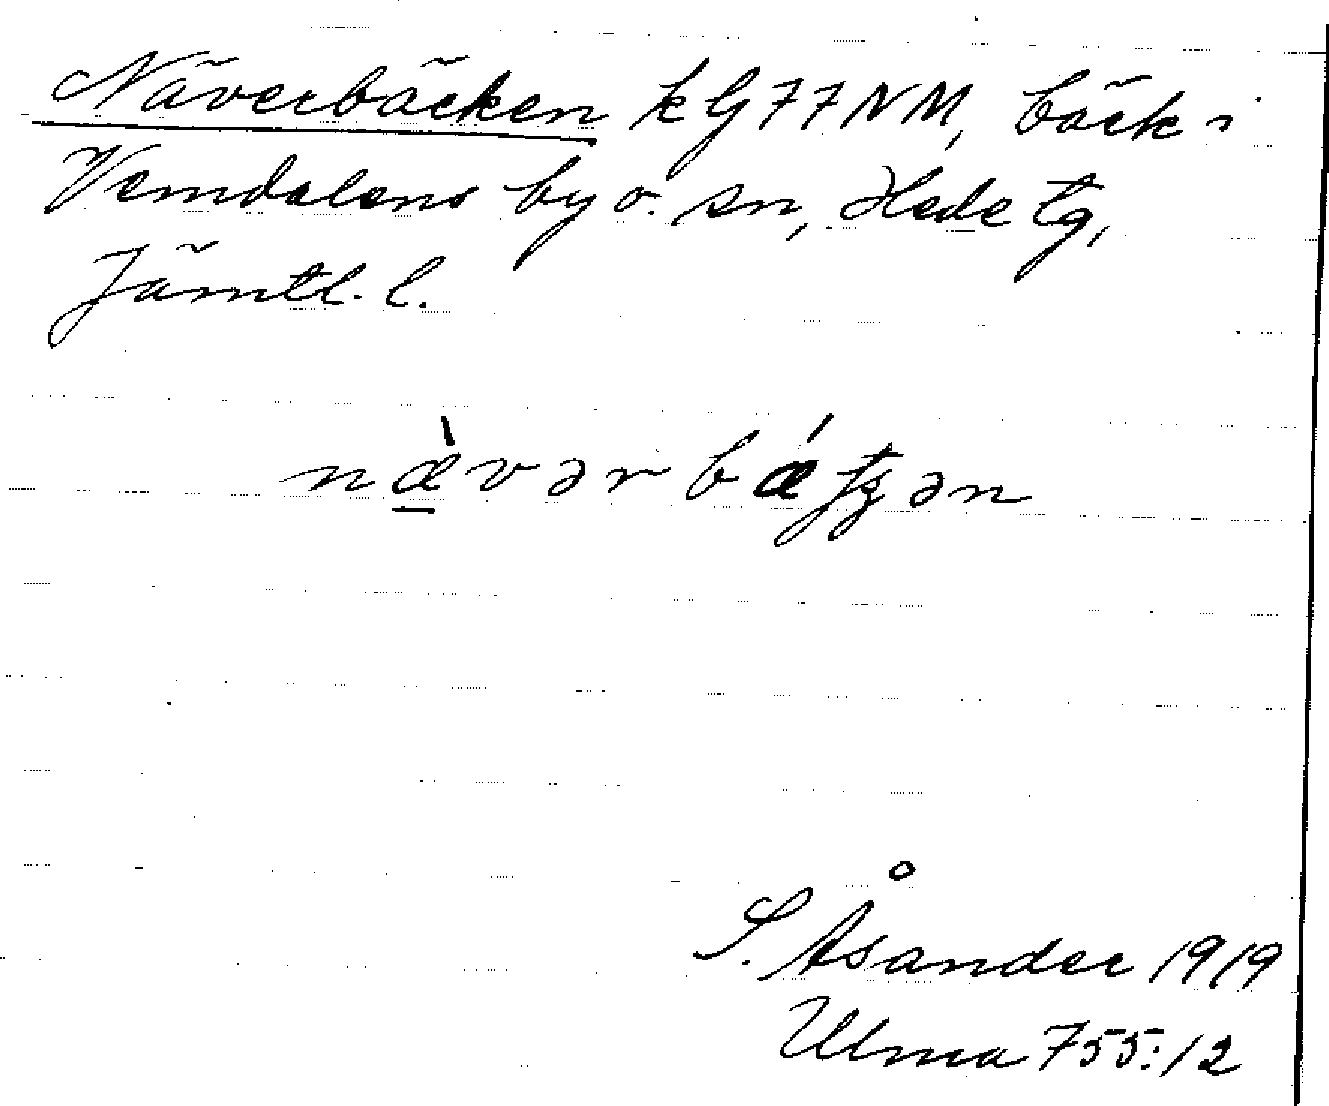 Näverbäcken kG77NM, bäck i
Vemdalens by o. sn, Hede tg,
Jämtl. l.
næ̀vərbǽʈʂən
S. Åsander 1919
Ulma 755:12